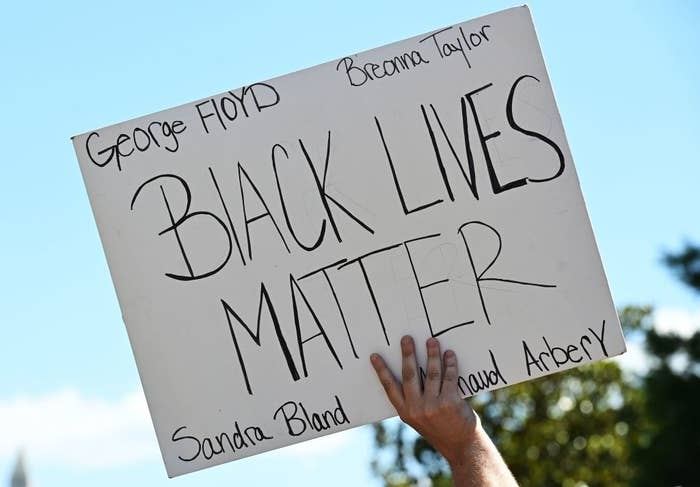 George FlOYD
Breonna Taylor
BlACK LIVES
MATTER
Sandra Bland
naud ArberY